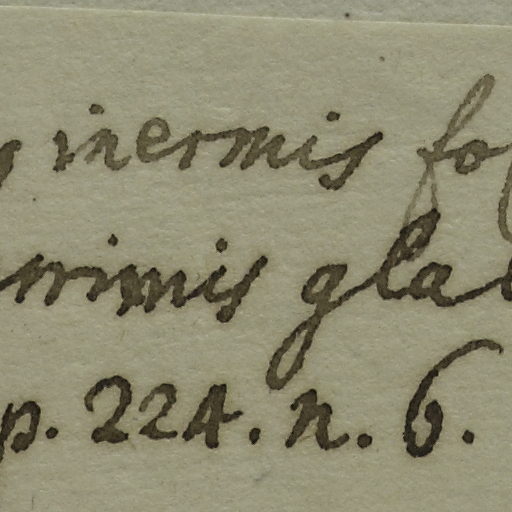 inermis fo
rrimis gla
p. 224. n. 6.